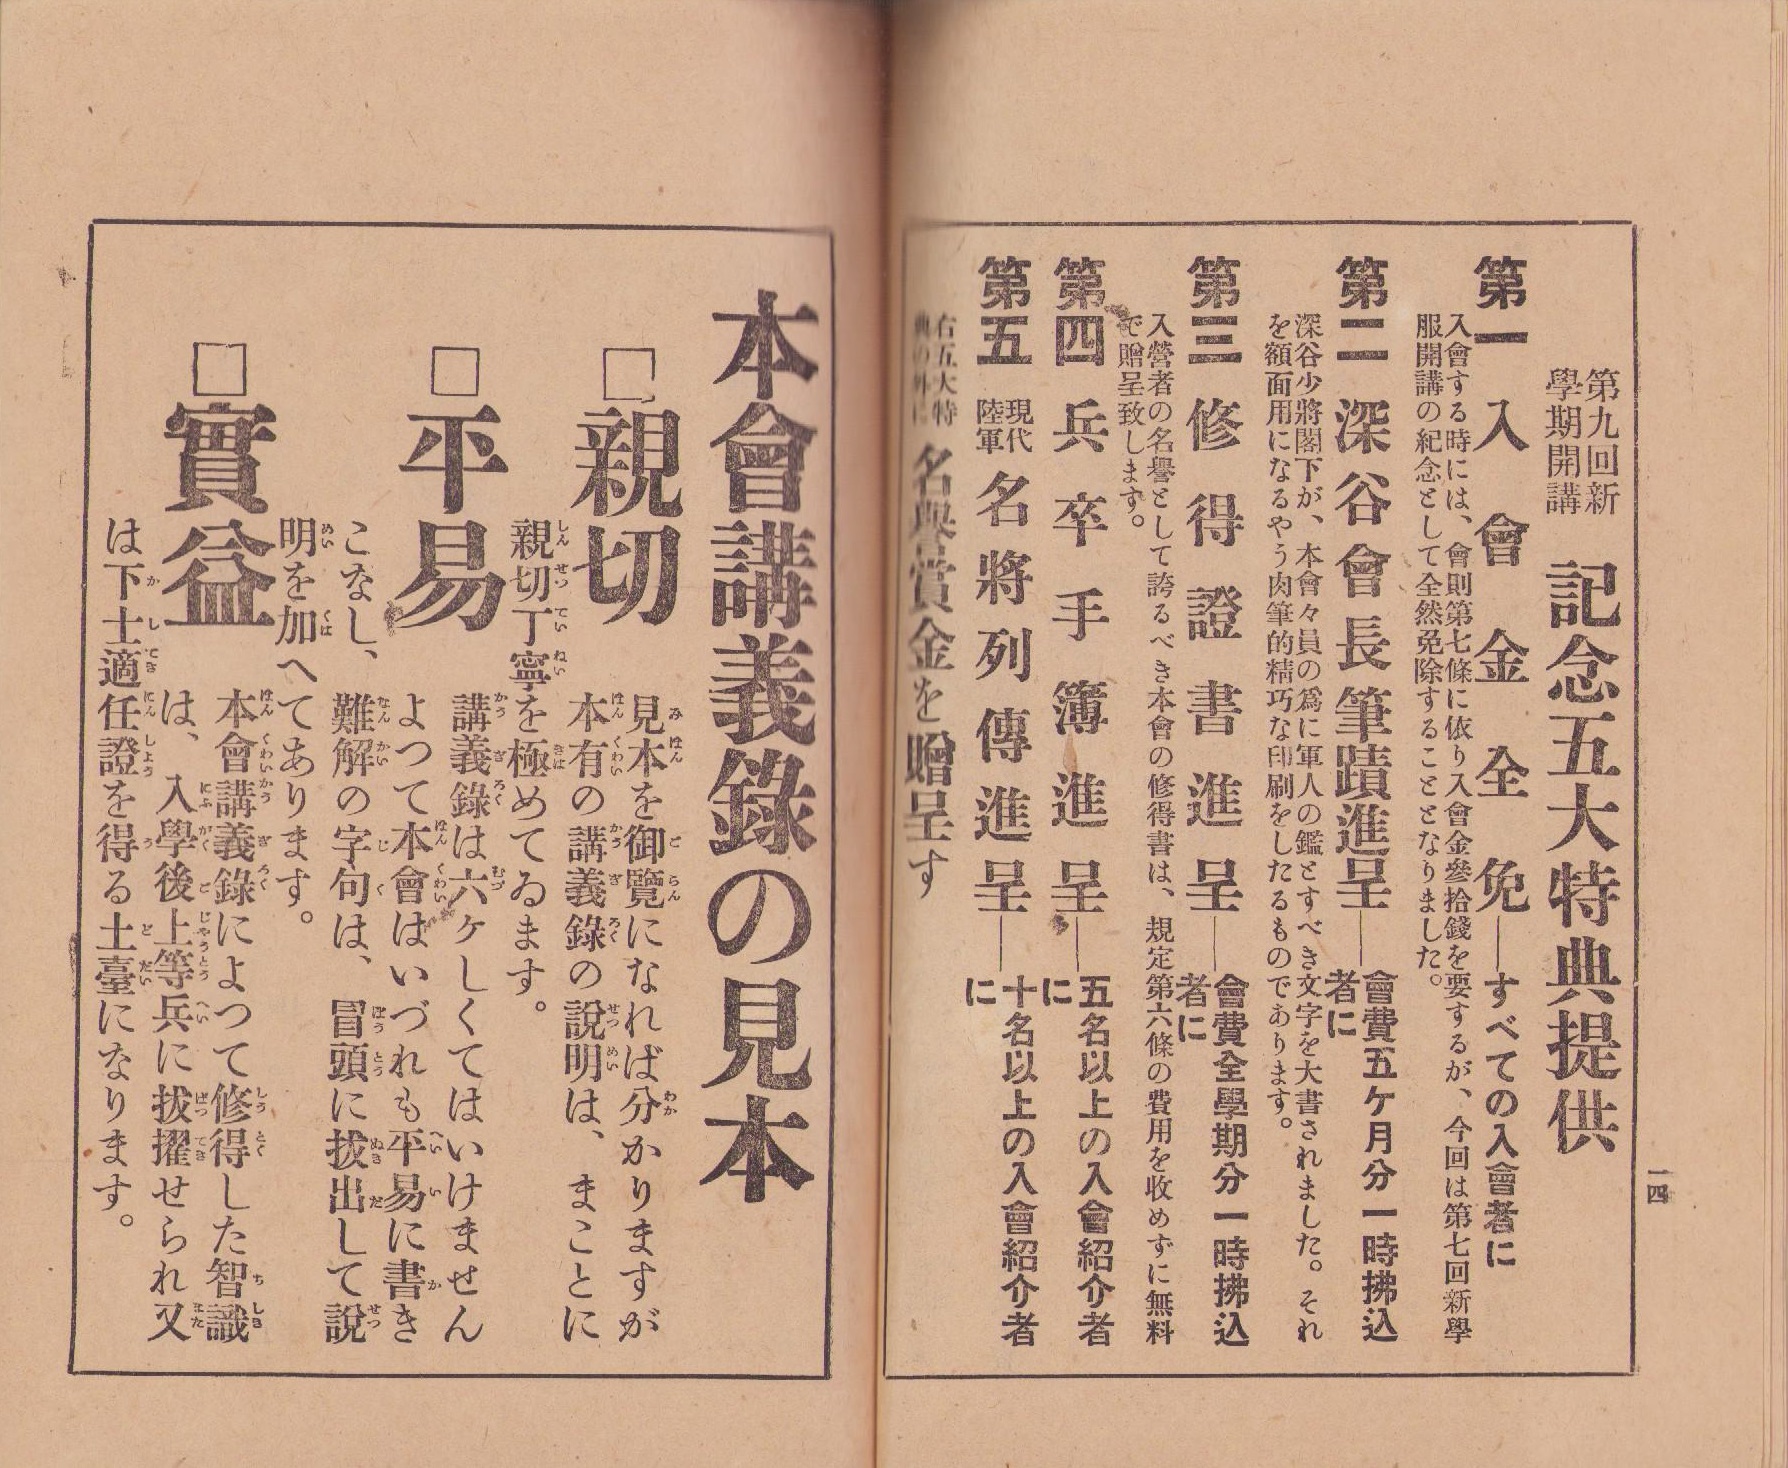 一四
第九回新
學期開講
記念五大特典提供
第一 入會金全免――すべての入會者に
入會する時には、會則第七條に依り入會金參拾錢を要するが、今回は第七回新學
服開講の紀念として全然免除することとなりました。
第二 深谷會長筆蹟進呈――會費五ケ月分一時拂込
者に
深谷少將閣下が、本會々員の爲に軍人の鑑とすべき文字を大書されました。それ
を額面用になるやう肉筆的精巧な印刷をしたるものであります。
第三 修得證書進呈――會費全學期分一時拂込
者に
入營者の名譽として誇るべき本會の修得書は、規定第六條の費用を收めずに無料
で贈呈致します。
第四 兵卒手簿進呈――五名以上の入會紹介者
に
第五 現代
陸軍 名將列傳進呈――十名以上の入會紹介者
に
右五大特
典の外に 名譽賞金を贈呈す
本會講義錄の見本
□親切
見本を御覽になれば分かりますが
本有の講義錄の說明は、まことに
親切丁寧を極めてゐます。
□平易
講義錄は六ケしくてはいけません
よつて本會はいづれも平易に書き
こなし、難解の字句は、冒頭に拔出して說
明を加へてあります。
□實益
本會講義錄によつて修得した智識
は、入學後上等兵に拔擢せられ又
は下士適任證を得る土臺になります。